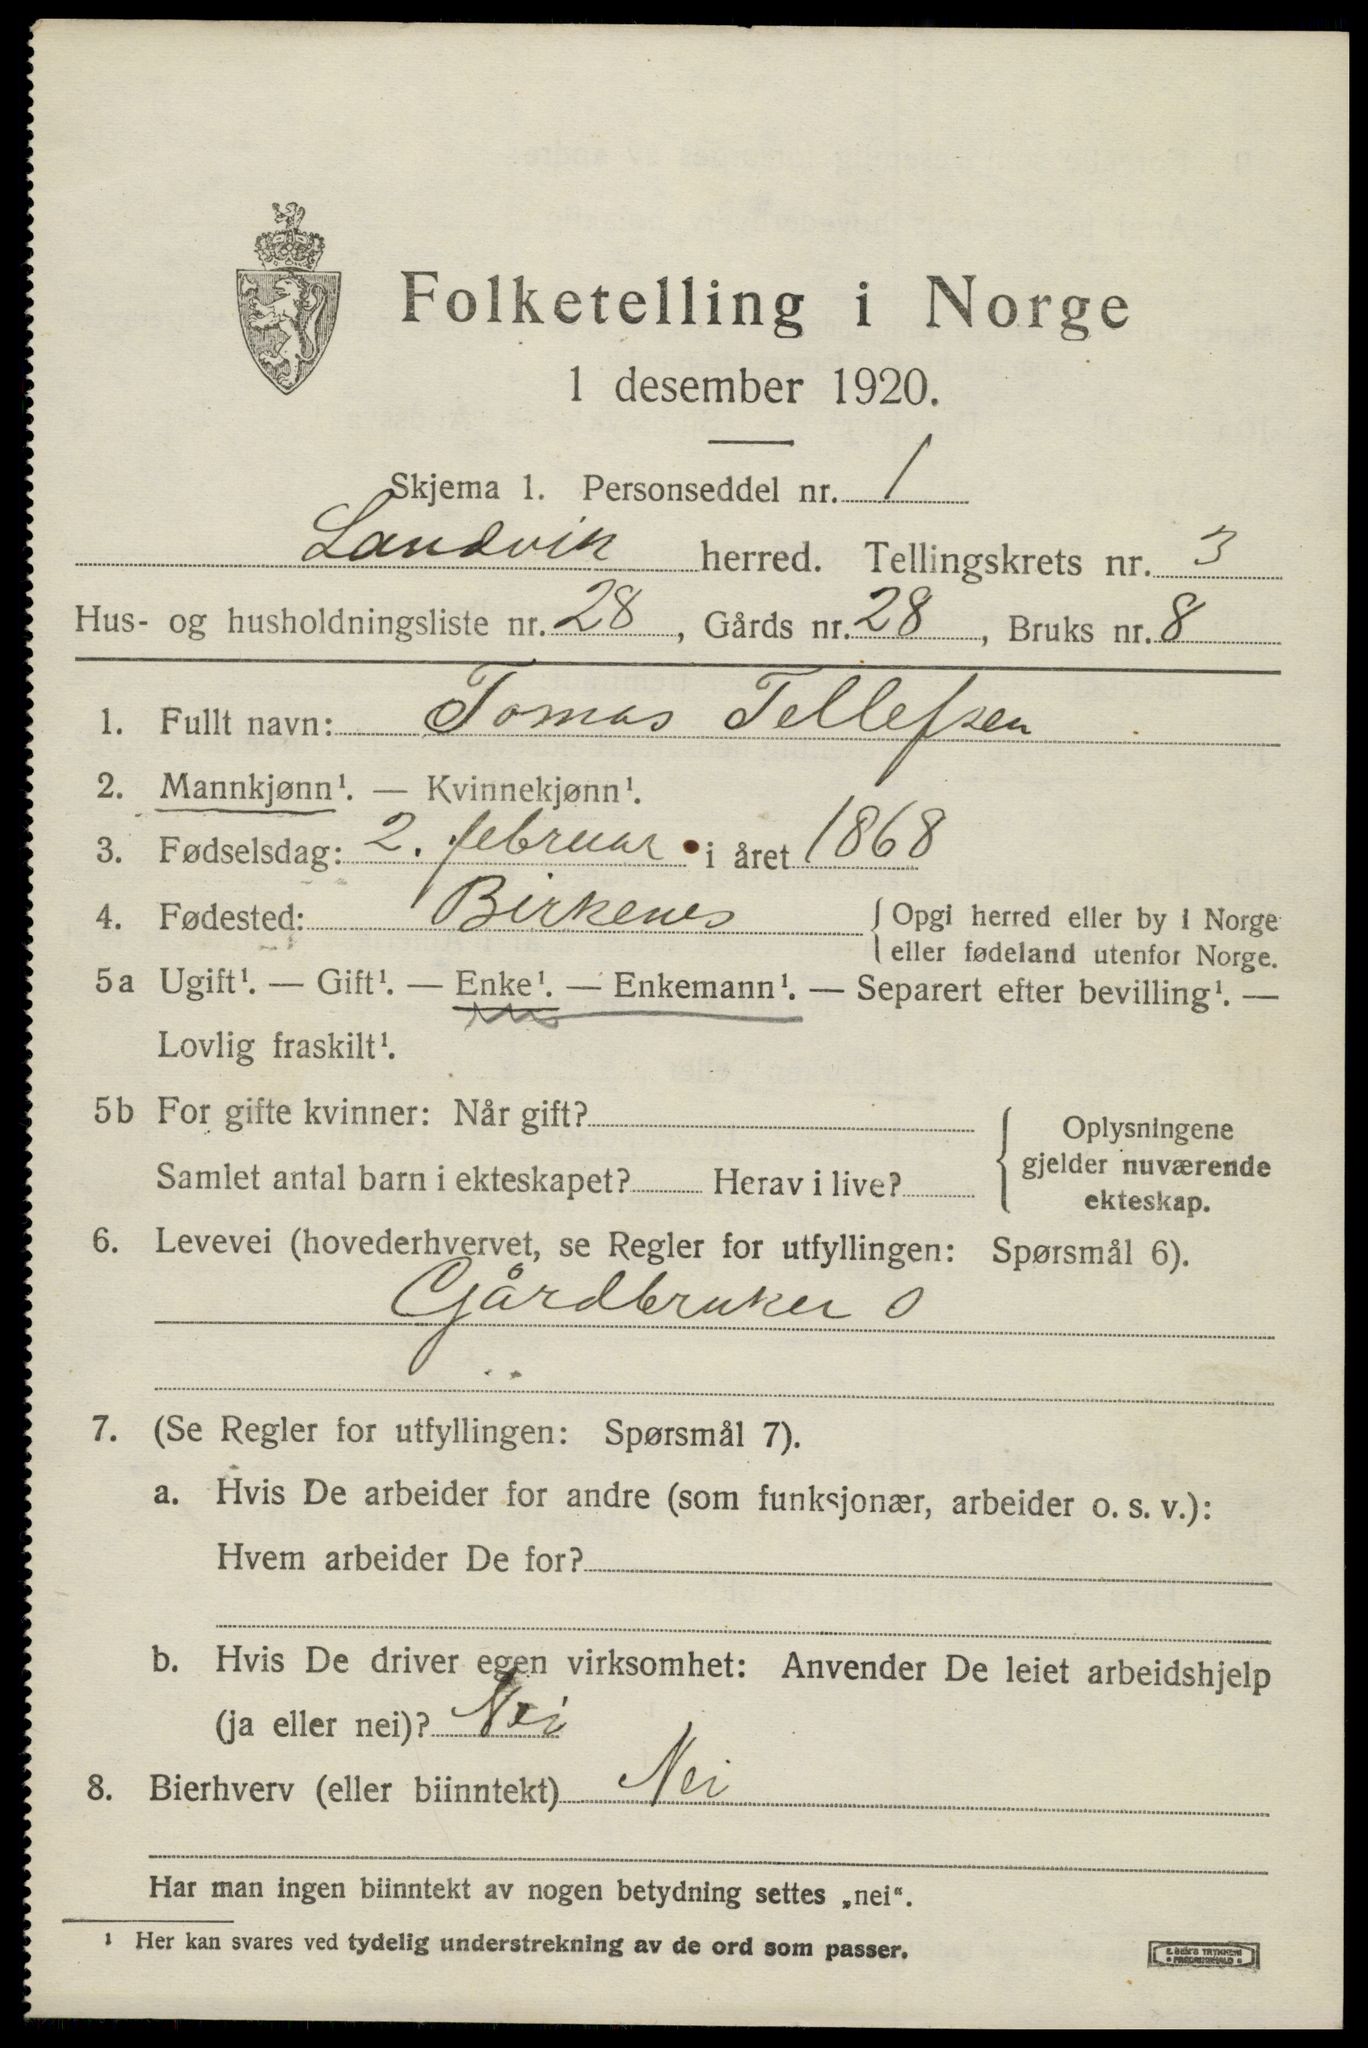 Folketelling i Norge
1 desember 1920.
Skjema 1. Personseddel nr. 1
Landvik herred. Tellingskrets nr. 3
Hus- og husholdningsliste nr. 28, Gårds nr. 28, Bruks nr. 8
1. Fullt navn: Tomas Tellefsen
2. Mannkjønn¹. — Kvinnekjønn¹.
3. Fødselsdag: 2. februar i året 1868
4. Fødested: Birkenes { Opgi herred eller by i Norge
eller fødeland utenfor Norge.
5a Ugift¹. — Gift¹. — Enke¹. — Enkemann¹. — Separert efter bevilling¹. —
Lovlig fraskilt¹.
5b For gifte kvinner: Når gift?
Samlet antal barn i ekteskapet? Herav i live?
{ Oplysningene
gjelder nuværende
ekteskap.
6. Levevei (hovederhvervet, se Regler for utfyllingen: Spørsmål 6).
Gårdbruker o
7. (Se Regler for utfyllingen: Spørsmål 7).
a. Hvis De arbeider for andre (som funksjonær, arbeider o. s. v.):
Hvem arbeider De for?
b. Hvis De driver egen virksomhet: Anvender De leiet arbeidshjelp
(ja eller nei)? Nei
8. Bierhverv (eller biinntekt) Nei
Har man ingen biinntekt av nogen betydning settes „nei“.
¹ Her kan svares ved tydelig understrekning av de ord som passer.